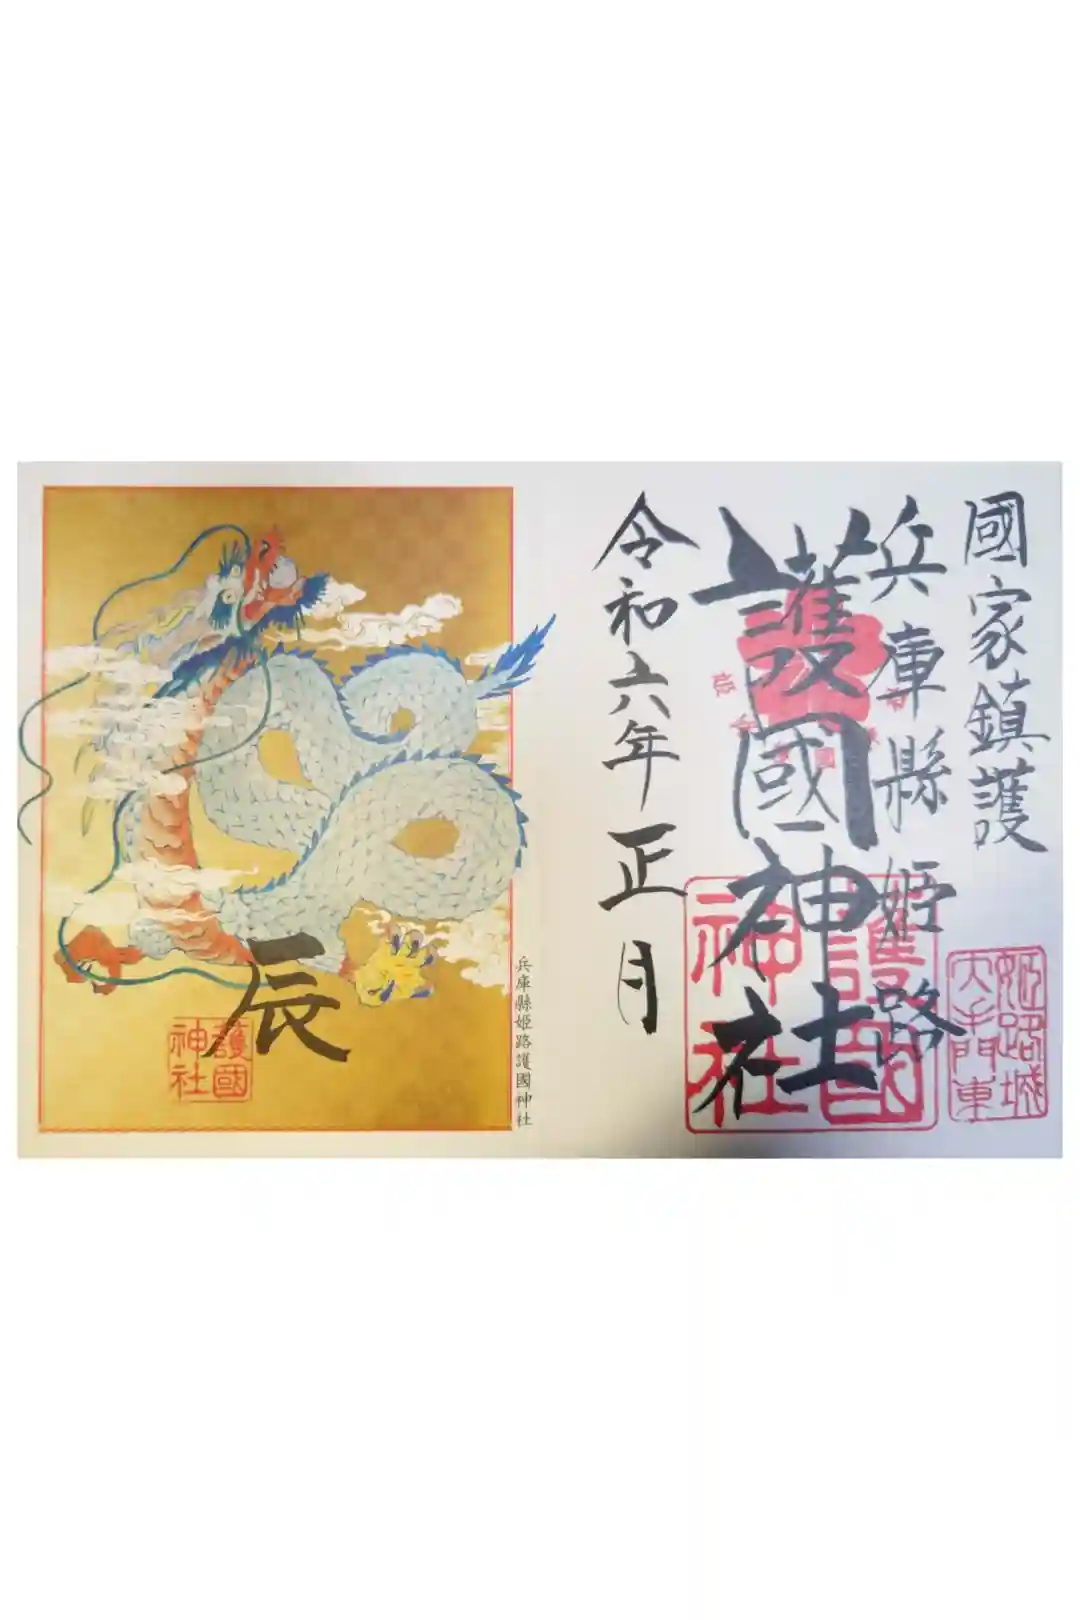 國家鎮護
姫路城
大手門東
兵庫縣姫路
護國神社
護國
神社
令和六年正月
兵庫縣姫路護國神社
辰
護國
神社